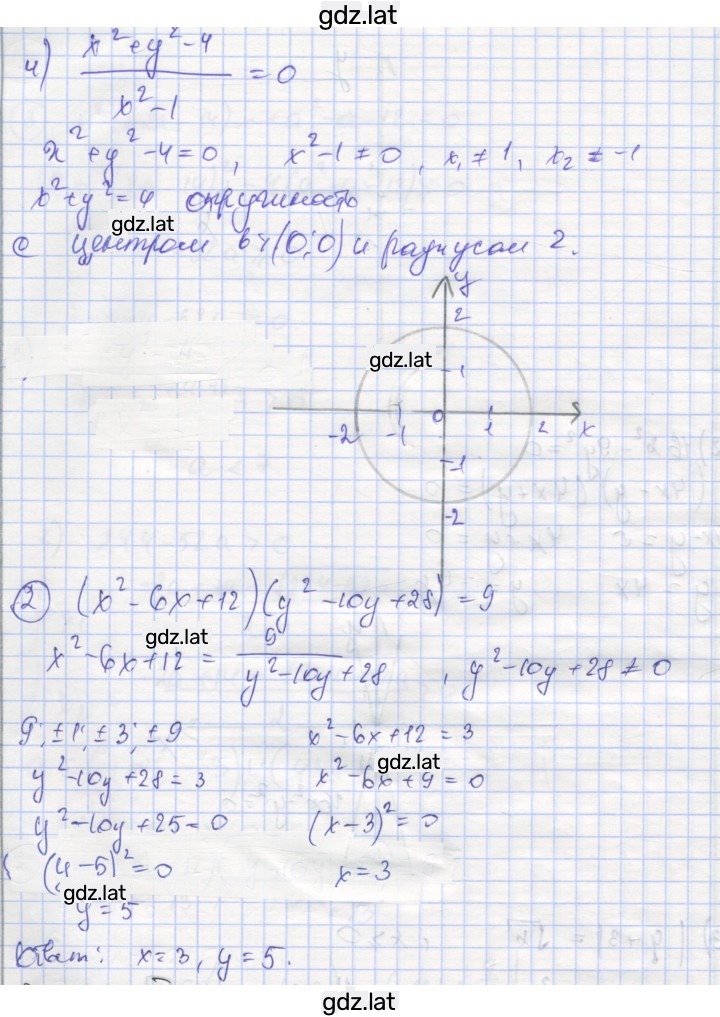 gdz.lat
4) (x² + y² - 4) / (x² - 1) = 0
x² + y² - 4 = 0, x² - 1 ≠ 0, x₁ ≠ 1, x₂ ≠ -1
x² + y² = 4 окружность
gdz.lat
с центром в т (0;0) и радиусом 2.
y
2
gdz.lat
1
-2 -1 0 1 2 x
-1
-2
② (x² - 6x + 12)(y² - 10y + 28) = 9
gdz.lat
x² - 6x + 12 = 9 / (y² - 10y + 28), y² - 10y + 28 ≠ 0
9; ±1; ±3; ±9 x² - 6x + 12 = 3
gdz.lat
y² - 10y + 28 = 3 x² - 6x + 9 = 0
y² - 10y + 25 = 0 (x - 3)² = 0
(y - 5)² = 0 x = 3
gdz.lat
y = 5
Ответ: x = 3, y = 5.
gdz.lat